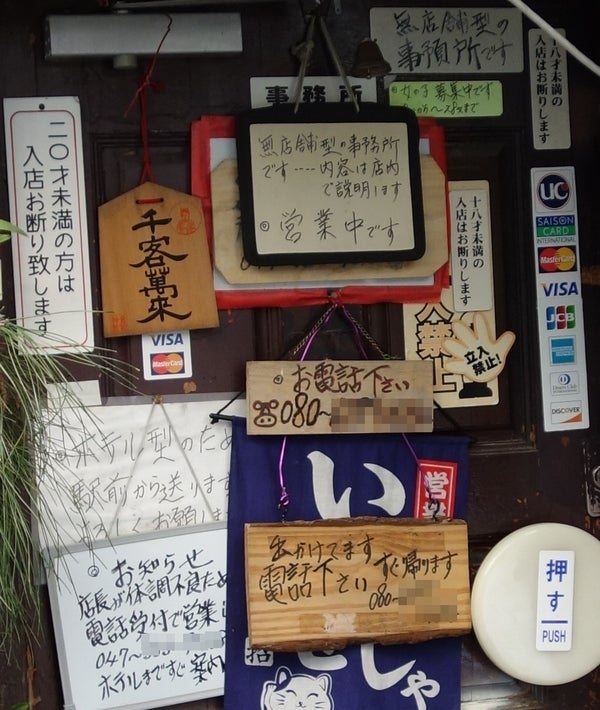 無店舗型の
事預所です
十八才未満の
入店はお断りします
事務所
◎女の子募集中です
二〇才未満の方は
入店お断り致します
千客萬來
無店舗型の事務所
です....内容は店内
で説明します
◎営業中です
十八才未満の
入店はお断りします
UC
SAISON
CARD
INTERNATIONAL
MasterCard
VISA
JCB
Diners Club
INTERNATIONAL
DISCOVER
VISA
MasterCard
立入
禁止!
◎お電話下さい
080~
◎ホテル型のため
駅前から送ります
よろしくお願いします
い
営業
出かけてます
すぐ帰ります
電話下さい
080~
◎お知らせ
店長が体調不良ため
電話受付で営業し
047~
ホテルまですぐ案内
しゃ
押す
PUSH